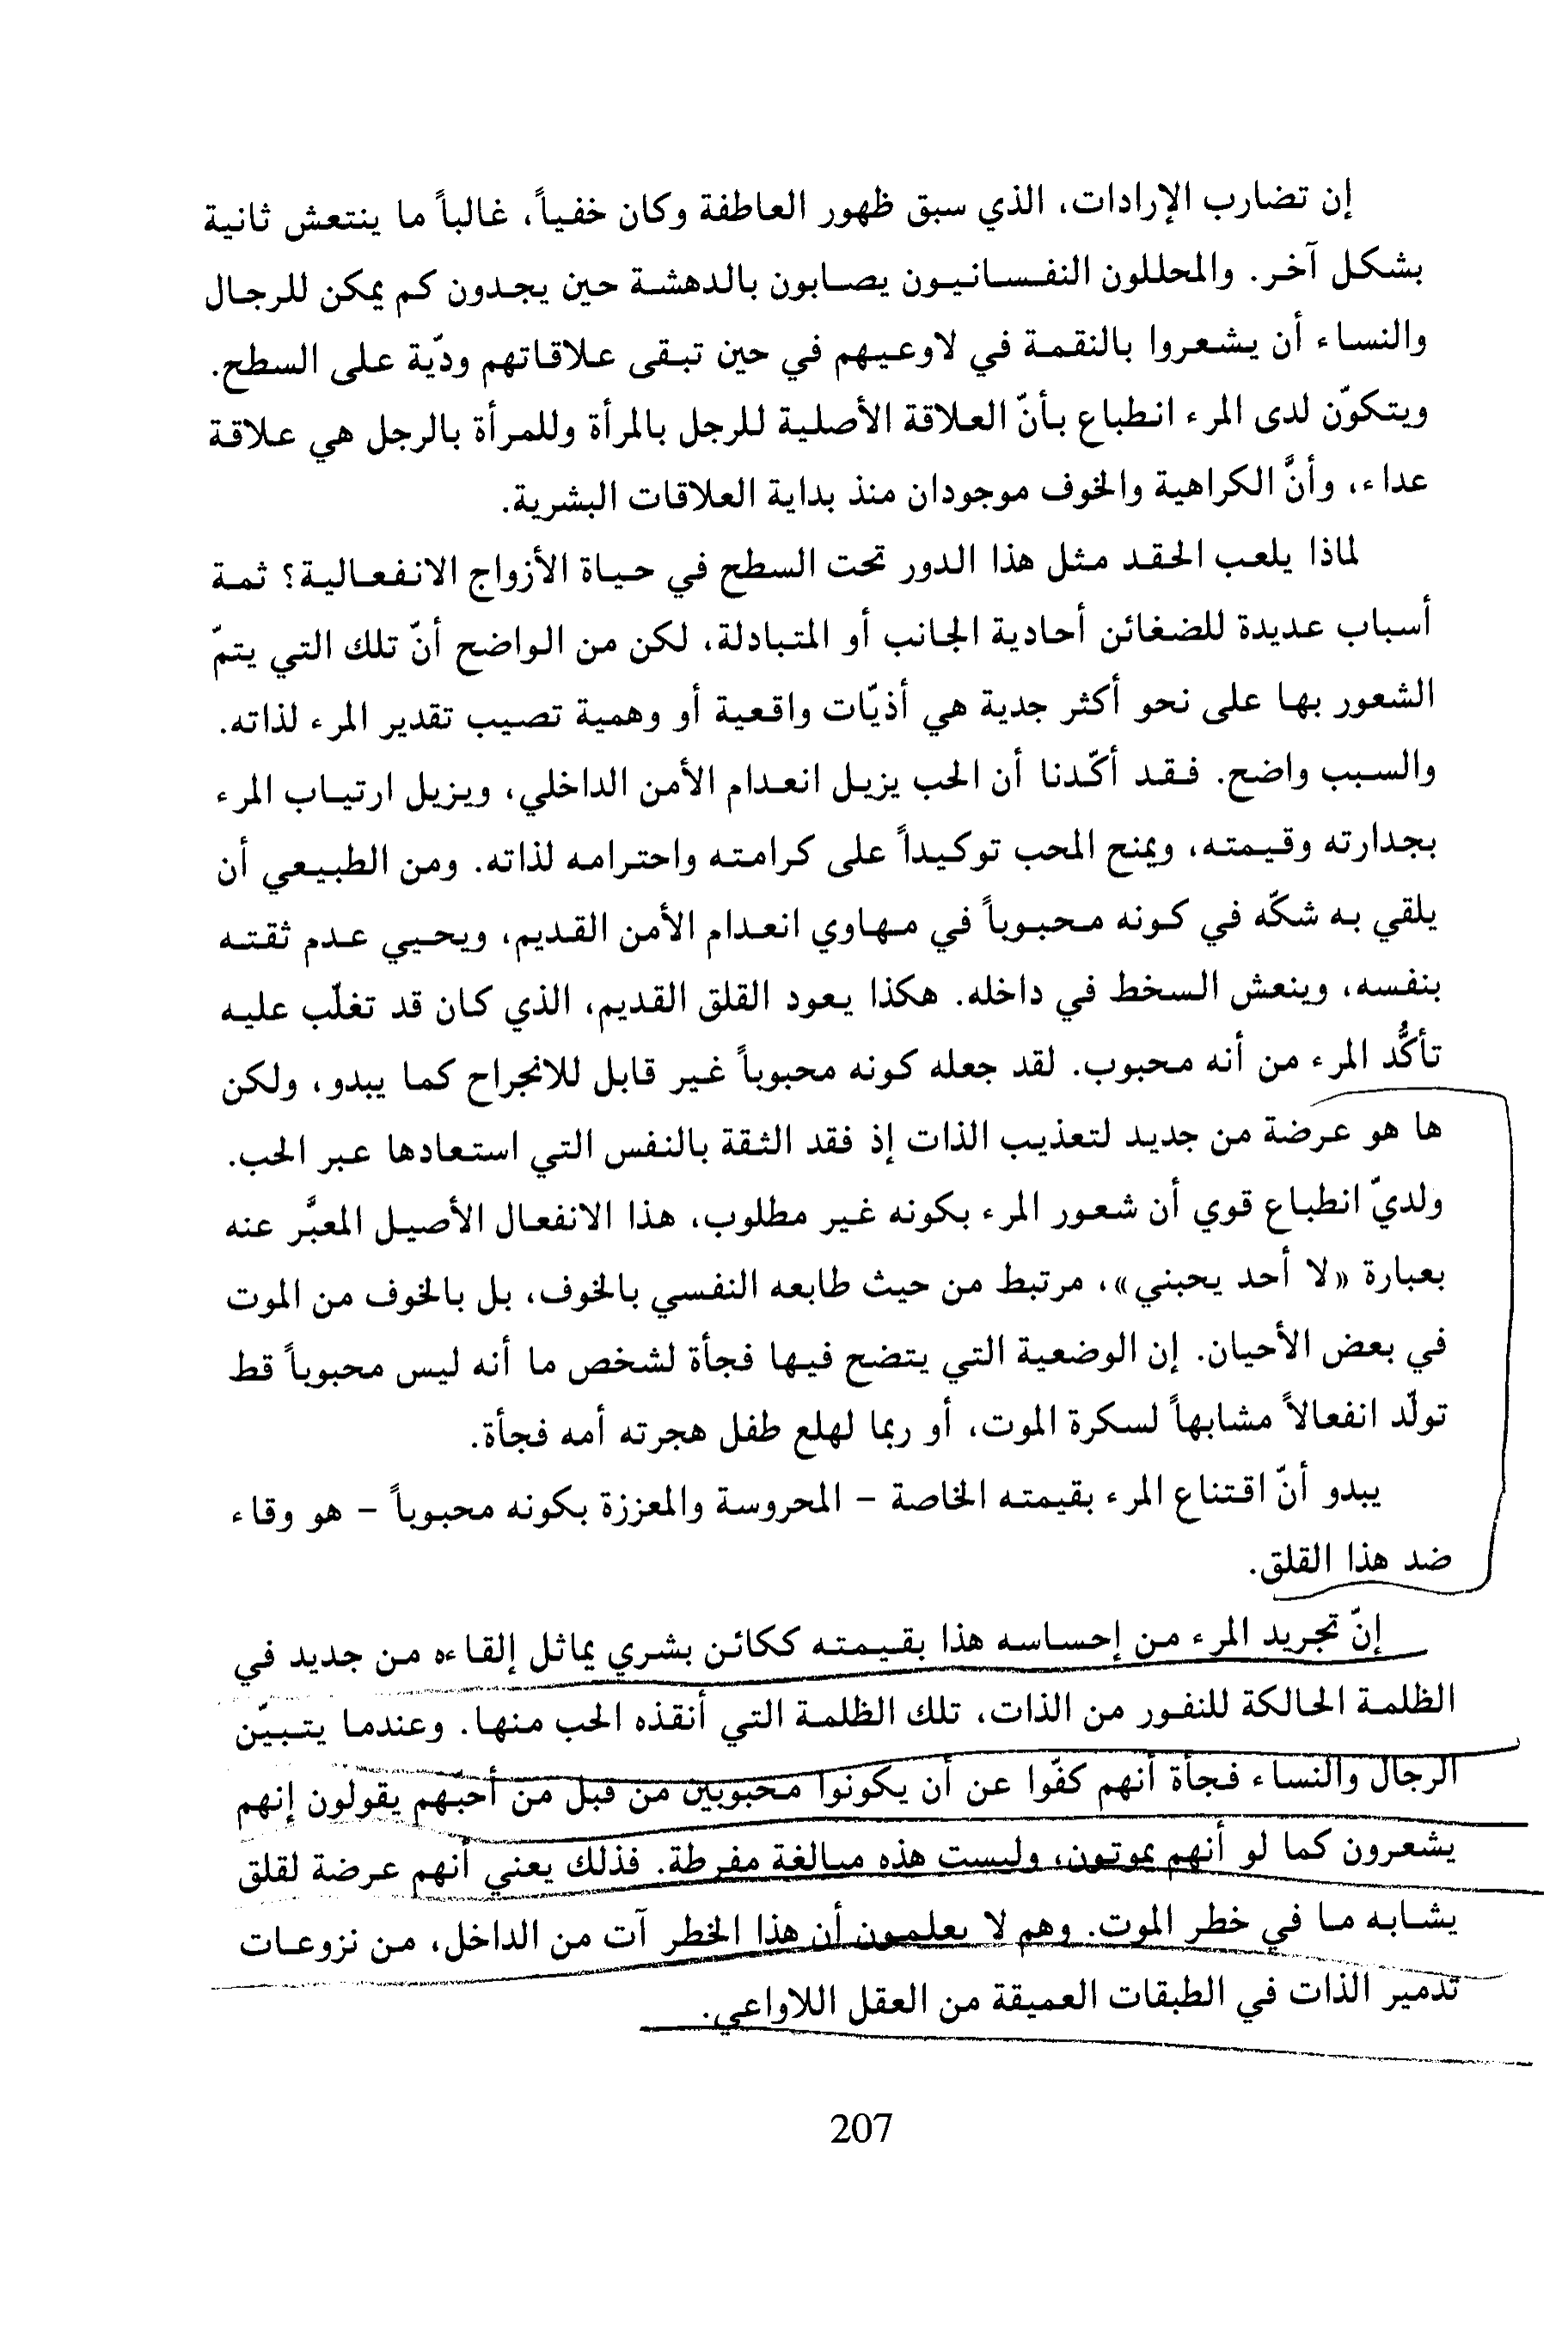 إن تضارب الإرادات، الذي سبق ظهور العاطفة وكان خفياً، غالباً ما ينتعش ثانية
بشكل آخر. والمحللون النفسانيون يصابون بالدهشة حين يجدون كم يمكن للرجال
والنساء أن يشعروا بالنقمة في لاوعيهم في حين تبقى علاقاتهم ودّية على السطح.
ويتكوّن لدى المرء انطباع بأنّ العلاقة الأصلية للرجل بالمرأة وللمرأة بالرجل هي علاقة
عداء، وأنَّ الكراهية والخوف موجودان منذ بداية العلاقات البشرية.
لماذا يلعب الحقد مثل هذا الدور تحت السطح في حياة الأزواج الانفعالية؟ ثمة
أسباب عديدة للضغائن أحادية الجانب أو المتبادلة، لكن من الواضح أنّ تلك التي يتمّ
الشعور بها على نحو أكثر جدية هي أذيّات واقعية أو وهمية تصيب تقدير المرء لذاته.
والسبب واضح. فقد أكّدنا أن الحب يزيل انعدام الأمن الداخلي، ويزيل ارتياب المرء
بجدارته وقيمته، ويمنح المحب توكيداً على كرامته واحترامه لذاته. ومن الطبيعي أن
يلقي به شكّه في كونه محبوباً في مهاوي انعدام الأمن القديم، ويحيي عدم ثقته
بنفسه، وينعش السخط في داخله. هكذا يعود القلق القديم، الذي كان قد تغلّب عليه
تأكُّد المرء من أنه محبوب. لقد جعله كونه محبوباً غير قابل للانجراح كما يبدو، ولكن
ها هو عرضة من جديد لتعذيب الذات إذ فقد الثقة بالنفس التي استعادها عبر الحب.
ولديّ انطباع قوي أن شعور المرء بكونه غير مطلوب، هذا الانفعال الأصيل المعبَّر عنه
بعبارة «لا أحد يحبني»، مرتبط من حيث طابعه النفسي بالخوف، بل بالخوف من الموت
في بعض الأحيان. إن الوضعية التي يتضح فيها فجأة لشخص ما أنه ليس محبوباً قط
تولّد انفعالاً مشابهاً لسكرة الموت، أو ربما لهلع طفل هجرته أمه فجأة.
يبدو أنّ اقتناع المرء بقيمته الخاصة - المحروسة والمعززة بكونه محبوباً - هو وقاء
ضد هذا القلق.
إنّ تجريد المرء من إحساسه هذا بقيمته ككائن بشري يماثل إلقاءه من جديد في
الظلمة الحالكة للنفور من الذات، تلك الظلمة التي أنقذه الحب منها. وعندما يتبيّن
الرجال والنساء فجأة أنهم كفّوا عن أن يكونوا محبوبين من قبل من أحبّهم يقولون إنهم
يشعرون كما لو أنهم يموتون، وليست هذه مبالغة مفرطة. فذلك يعني أنهم عرضة لقلق
يشابه ما في خطر الموت. وهم لا يعلمون أن هذا الخطر آت من الداخل، من نزوعات
تدمير الذات في الطبقات العميقة من العقل اللاواعي.
207